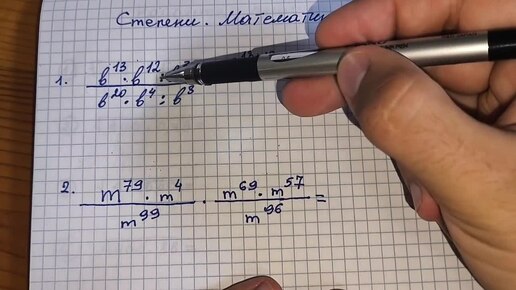 Степени. Математи
1. b¹³ · b¹² :
b²⁰ · b⁴ : b³
2. m⁷⁹ · m⁴ / m⁹⁹ · m⁶⁹ · m⁵⁷ / m⁹⁶ =